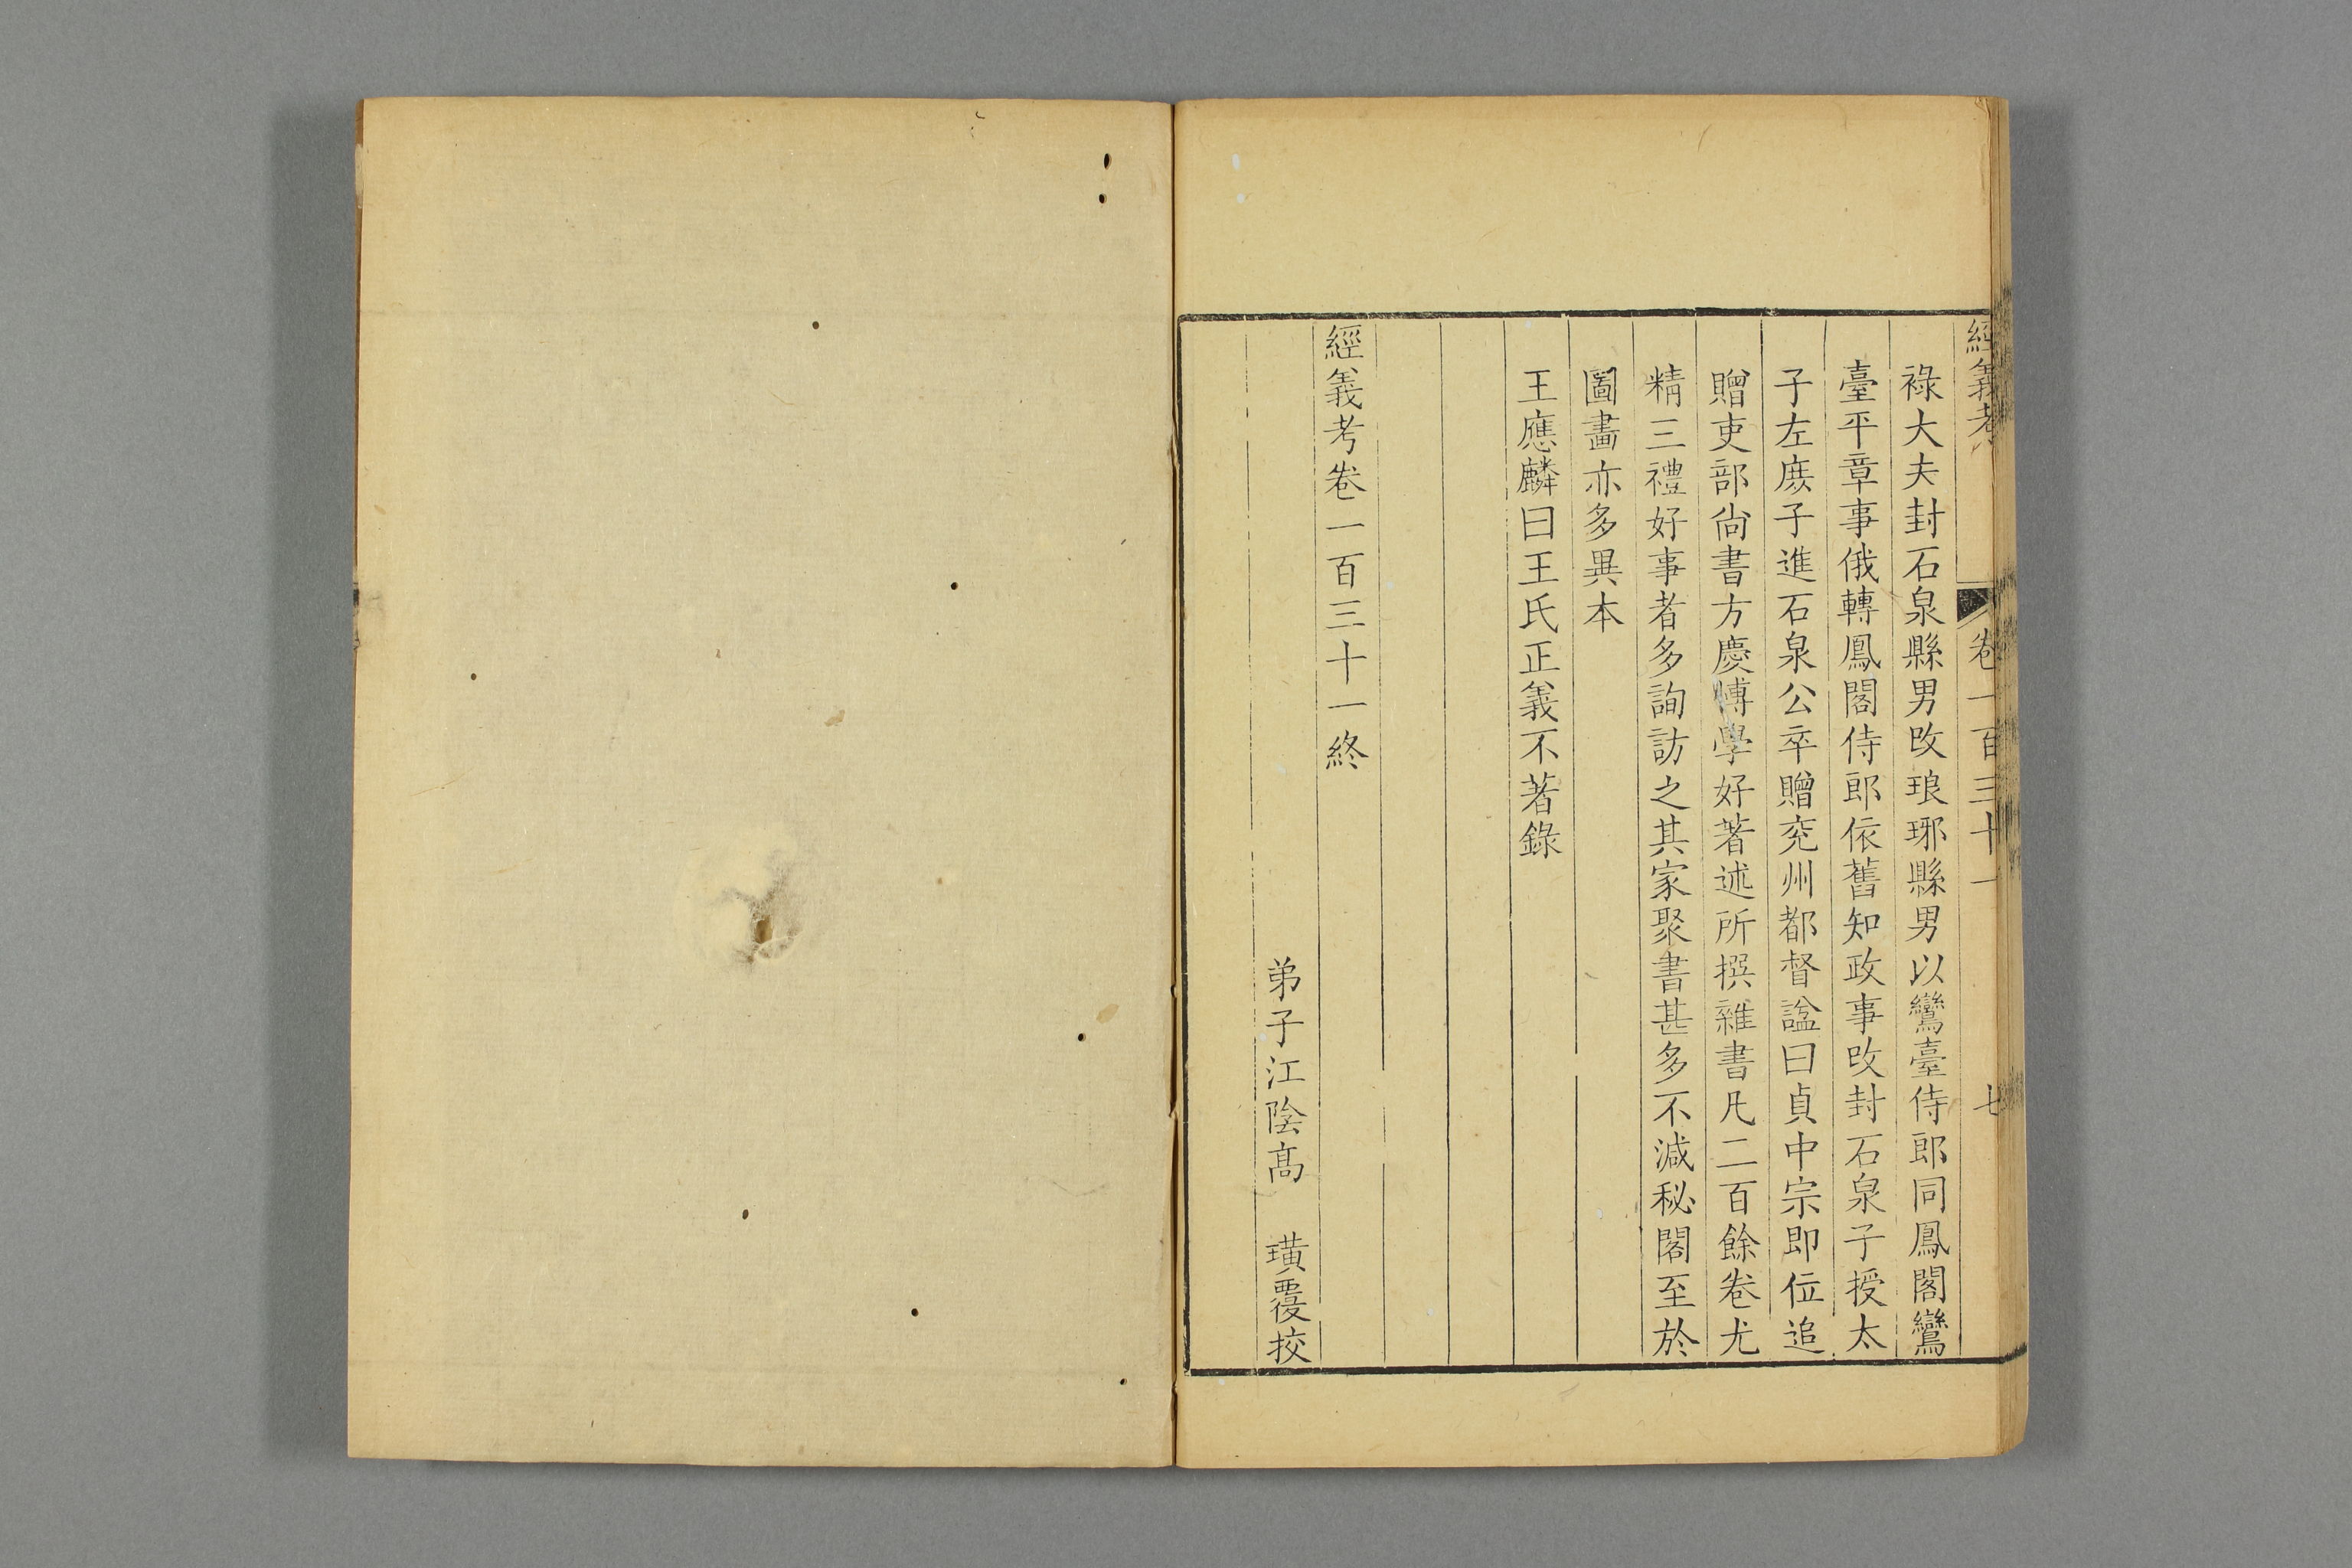 經義考
卷一百三十一
七
祿大夫封石泉縣男改琅琊縣男以鸞臺侍郎同鳳閣鸞
臺平章事俄轉鳳閣侍郎依舊知政事改封石泉子授太
子左庶子進石泉公卒贈兖州都督諡曰貞中宗即位追
贈吏部尙書方慶博學好著述所撰雜書凡二百餘卷尤
精三禮好事者多詢訪之其家聚書甚多不減秘閣至於
圖畫亦多異本
王應麟曰王氏正義不著錄
經義考卷一百三十一終
弟子江陰高 璜覆挍